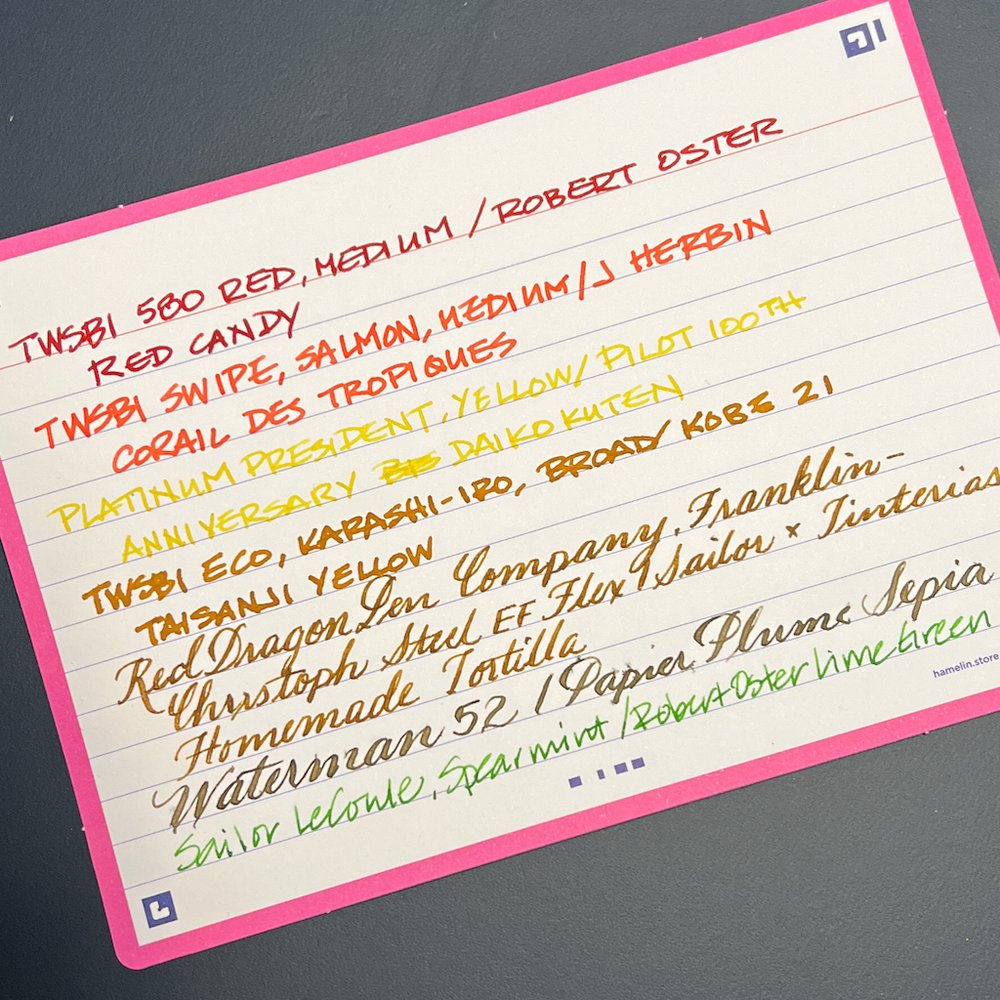 TWSBI 580 RED, MEDIUM / ROBERT OSTER
RED CANDY
TWSBI SWIPE, SALMON, MEDIUM / J HERBIN
CORAIL DES TROPIQUES
PLATINUM PRESIDENT, YELLOW / PILOT 100TH
ANNIVERSARY DAIKOKUTEN
TWSBI ECO, KARASHI-IRO, BROAD / KOBE 21
TAISANJI YELLOW
Red Dragon Pen Company, Franklin-
Christoph Steel EF Flex / Sailor x Tinterias
Homemade Tortilla
Waterman 52 / Papier Plume Sepia
Sailor LeCoule, Spearmint / Robert Oster Lime Green
hamelin.store